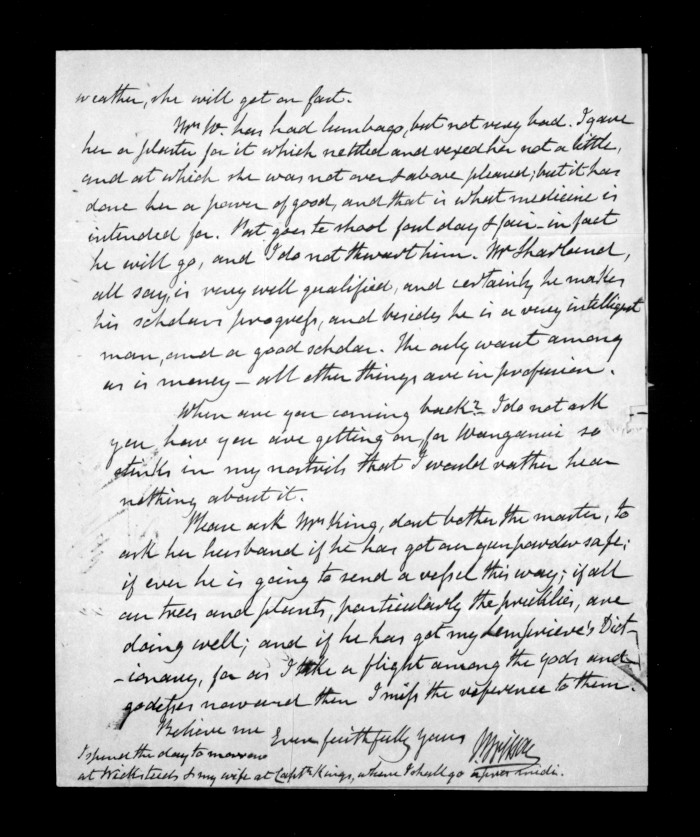 weather, she will get on fast.
Mrs W. has had lumbago, but not very bad. I gave
her a plaster for it which nettled and vexed her not a little,
and at which she was not over & above pleased; but it has
done her a power of good, and that is what medicine is
intended for. Pat goes to school foul day & fair – in fact
he will go, and I do not thwart him. Mr Sharland,
all say, is very well qualified, and certainly he makes
his scholars progress, and besides he is a very intelligent
man, and a good scholar. The only want among
us is money – all other things are in profusion.
When are you coming back? I do not ask
you how you are getting on, for Wanganui so
stinks in my nostrils that I would rather hear
nothing about it.
Please ask Mrs King, dont bother the master, to
ask her husband if he has got our gunpowder safe;
if ever he is going to send a vessel this way; if all
our trees and plants, particularly the, are
doing well; and if he has got my Lemprieve's Dict-
-ionary, for as I take a flight among the gods and
godesses now and then I miss the reference to them.
Believe me
Ever faithfully yours
I spend the day to morrow
at Wicksteeds & my wife at Captn Kings, where I shall go apres midi.